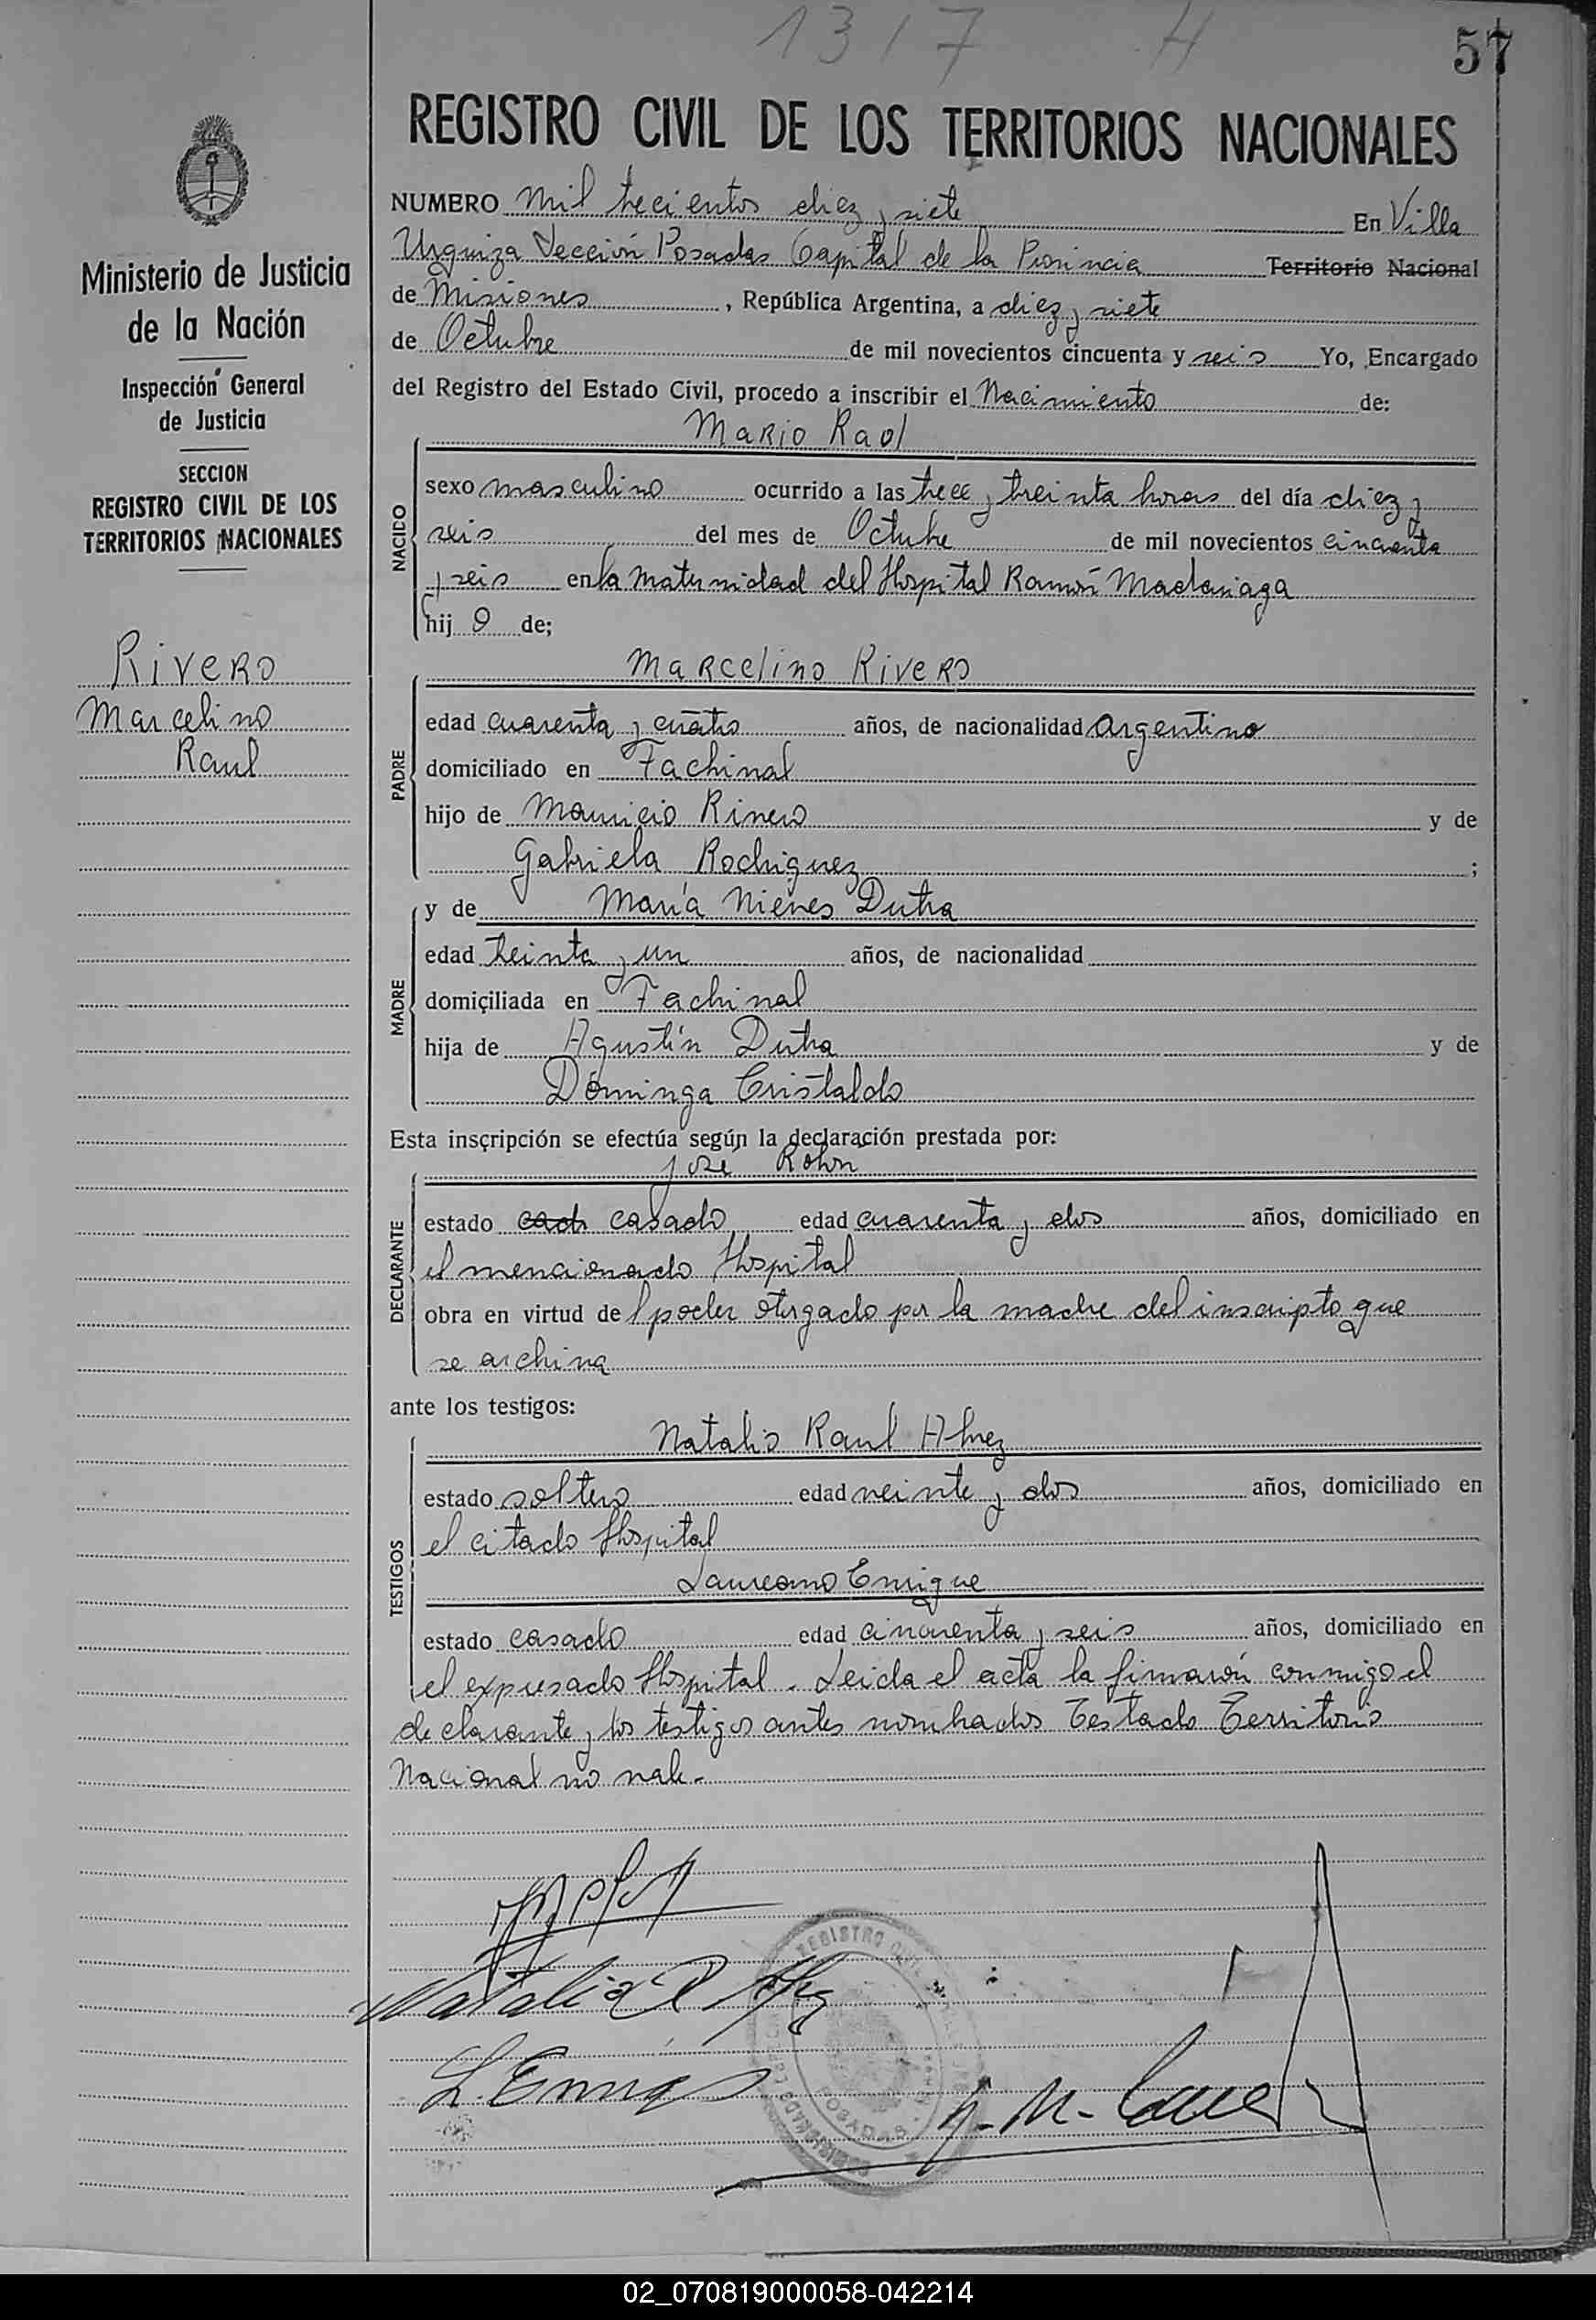 1317 H
57
REGISTRO CIVIL DE LOS TERRITORIOS NACIONALES
Ministerio de Justicia
de la Nación
Inspección General
de Justicia
SECCION
REGISTRO CIVIL DE LOS
TERRITORIOS NACIONALES
Rivero
Marcelino
Raul
NUMERO mil trecientos diez y siete En Villa
Urquiza Sección Posadas Capital de la Provincia Territorio Nacional
de Misiones, República Argentina, a diez y siete
de Octubre de mil novecientos cincuenta y seis Yo, Encargado
del Registro del Estado Civil, procedo a inscribir el Nacimiento de:
NACIDO
Mario Raol
sexo masculino ocurrido a las trece y treinta horas del día diez y
seis del mes de Octubre de mil novecientos cincuenta
y seis en la Maternidad del Hospital Ramón Madariaga
hijo de;
PADRE
Marcelino Rivero
edad cuarenta y cuatro años, de nacionalidad Argentino
domiciliado en Fachinal
hijo de Mauricio Rivero y de
Gabriela Rodriguez;
MADRE
y de María Nieves Dutra
edad treinta y un años, de nacionalidad
domiciliada en Fachinal
hija de Agustín Dutra y de
Dominga Cristaldo
Esta inscripción se efectúa según la declaración prestada por:
DECLARANTE
José Rohn
estado cado casado edad cuarenta y dos años, domiciliado en
el mencionado Hospital
obra en virtud del poder otorgado por la madre del inscripto que
se archiva
ante los testigos:
TESTIGOS
Natalio Raul Alvez
estado soltero edad veinte y dos años, domiciliado en
el citado Hospital
Laureano Enrique
estado casado edad cincuenta y seis años, domiciliado en
el expresado Hospital. Leida el acta la firmarón conmigo el
declarante y los testigos antes nombrados Testado Territorio
Nacional no vale.-
Natalio R Alvez
L. Enrique
REGISTRO CIVIL
02_070819000058-042214